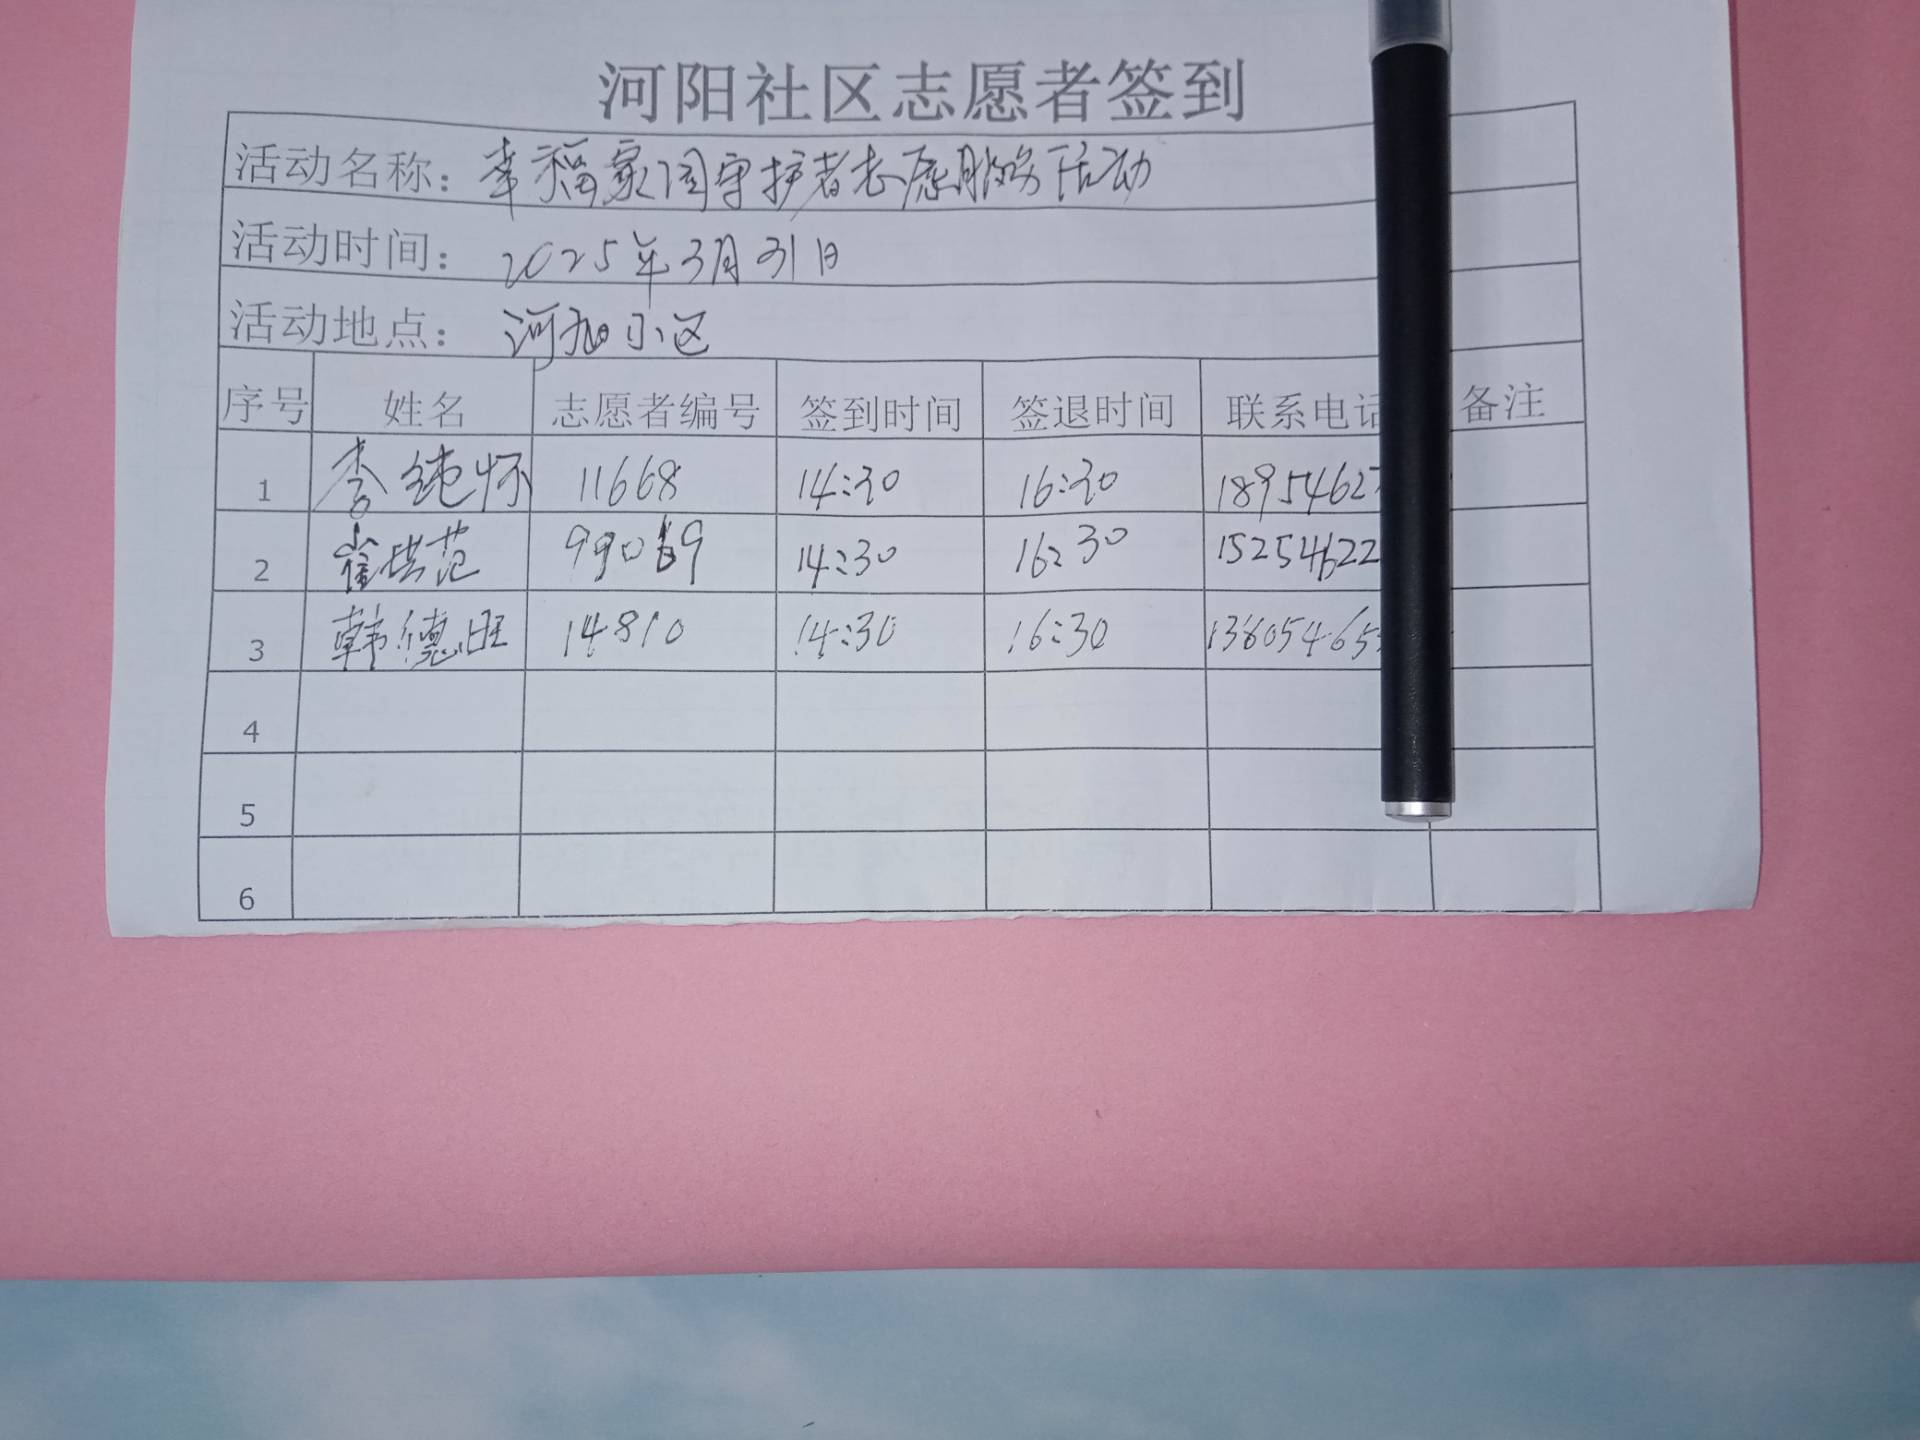 河阳社区志愿者签到
活动名称：幸福家园守护者志愿服务活动
活动时间：2025年3月31日
活动地点：河阳小区
序号 姓名 志愿者编号 签到时间 签退时间 联系电话 备注
1 李纯怀 11668 14:30 16:30 18954627
2 崔洪范 99069 14:30 16:30 15254622
3 韩德旺 14810 14:30 16:30 136054655
4
5
6